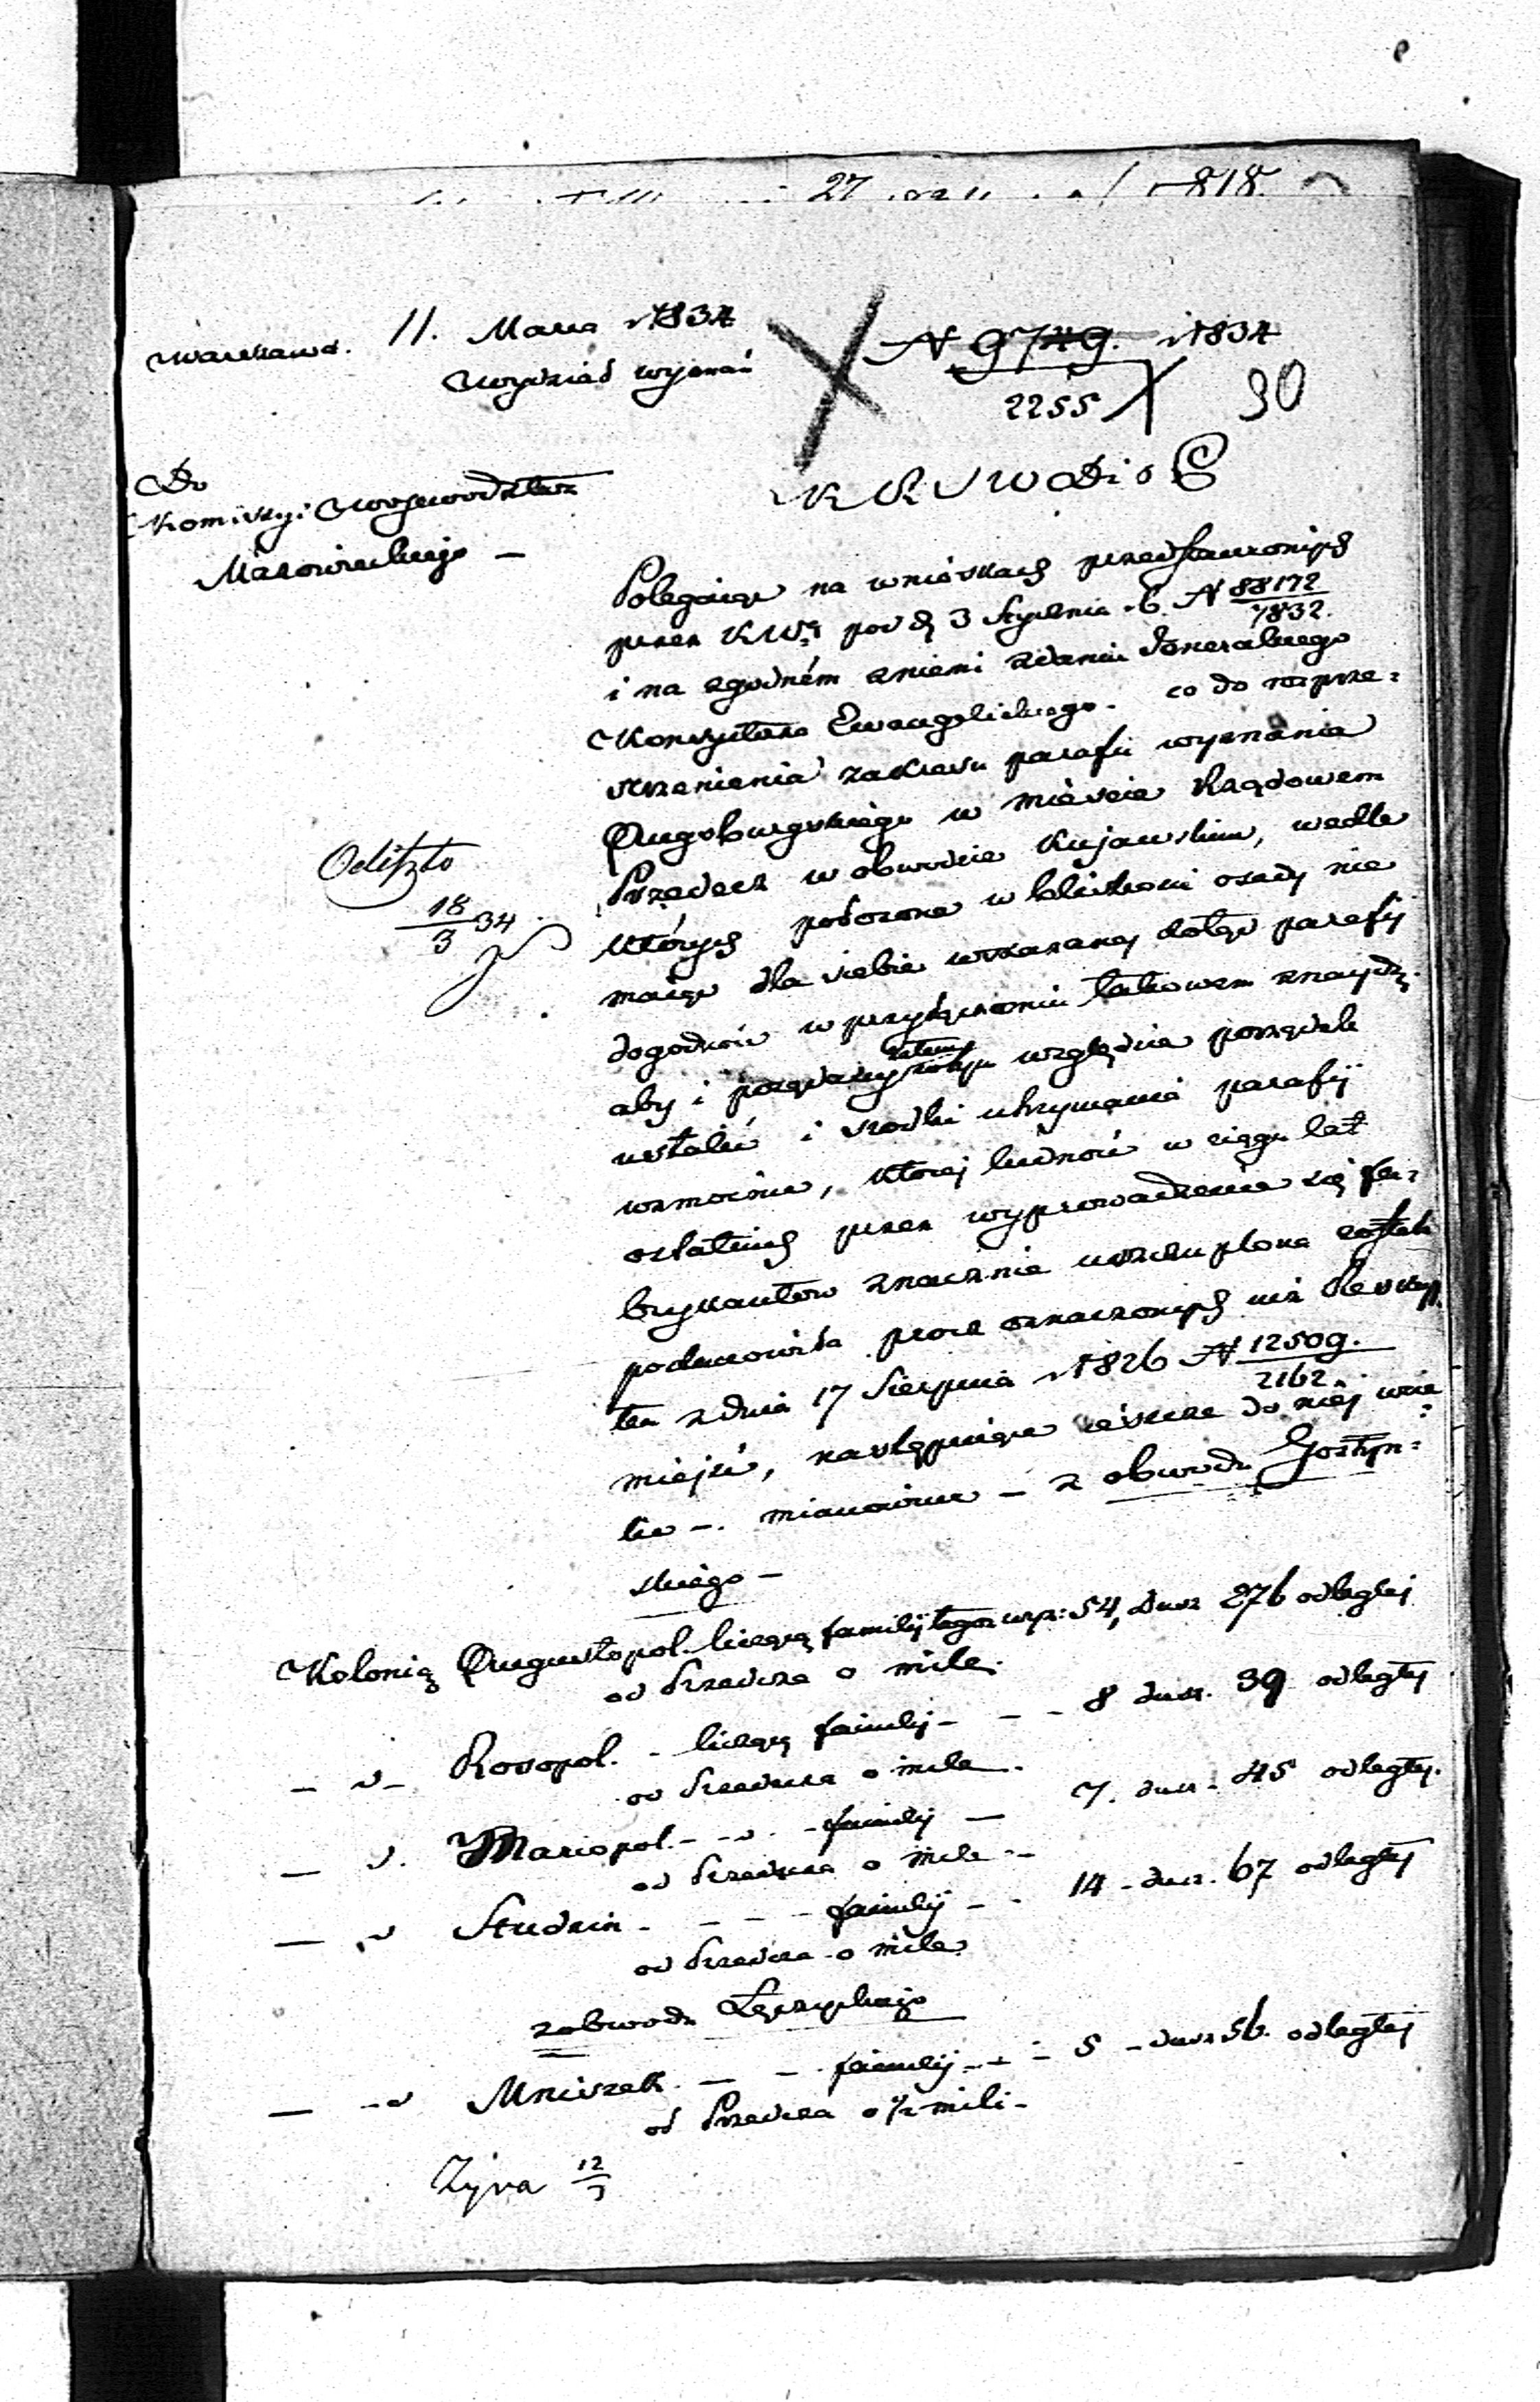 27 818
Warszawa. 11. Marca 1834
Wydział wyznań
N 9749. 1834
2255
90
Do
Kommissyi Woiewództwa
Mazowieckiego —
K R S W D i O P
Polegaiąc na wnioskach przedstawionych
przez KWą pod d. 3 Stycznia r. b. N 88172
7832.
i na zgodném z niemi zdaniu Jeneralnego
Konsystorza Ewangelickiego. co do rozprze=
strzenienia zakresu parafii wyznania
Augsburgskiego w mieście Rządowem
Przedecz w obwodzie Kujawskim, wedle
których położone w bliskości osady nie
maiąc dla siebie wskazanej dotąd parafij
dogodność w przyłączeniu takowem znajdą.
aby i pożądany zatem w tym względzie porządek
ustalić i środki utrzymania parafij
wzmocnić, której ludność w ciągu lat
ostatnich przez wyprowadzenie się fa=
brykantów znacznie uszczuplona została
postanowiła prócz oznaczonych iuż Reskryp
tem z dnia 17 Sierpnia 1826 N 12509.
2162.
mieysc, następuiące ieszcze do niej wcie
lić —. mianowicie — z obwodu Gostyń=
skiego —
Kolonią Augustopol. liczącą familij tegoż wyz: 54, dusz 276 odległej
od Przedcza o milę.
— „ — Rosopol. - liczącą familij - — - 8 dusz. 39 odległej
od Przedcza o milę.
— „. Mariopol. - - „ . - familij — 7. dusz - 45 odległej.
od Przedcza o milę -
— „ Studzin - - - - familij - - 14 - dusz. 67 odległej
od Przedcza - o milę
z obwodu Łęczyckiego
— - „ Mniszek. — - familij - - - 5 - dusz 56. odległej
od Przedcza o ½ mili -
Odliszto
18
3 34
Zyna 12
3